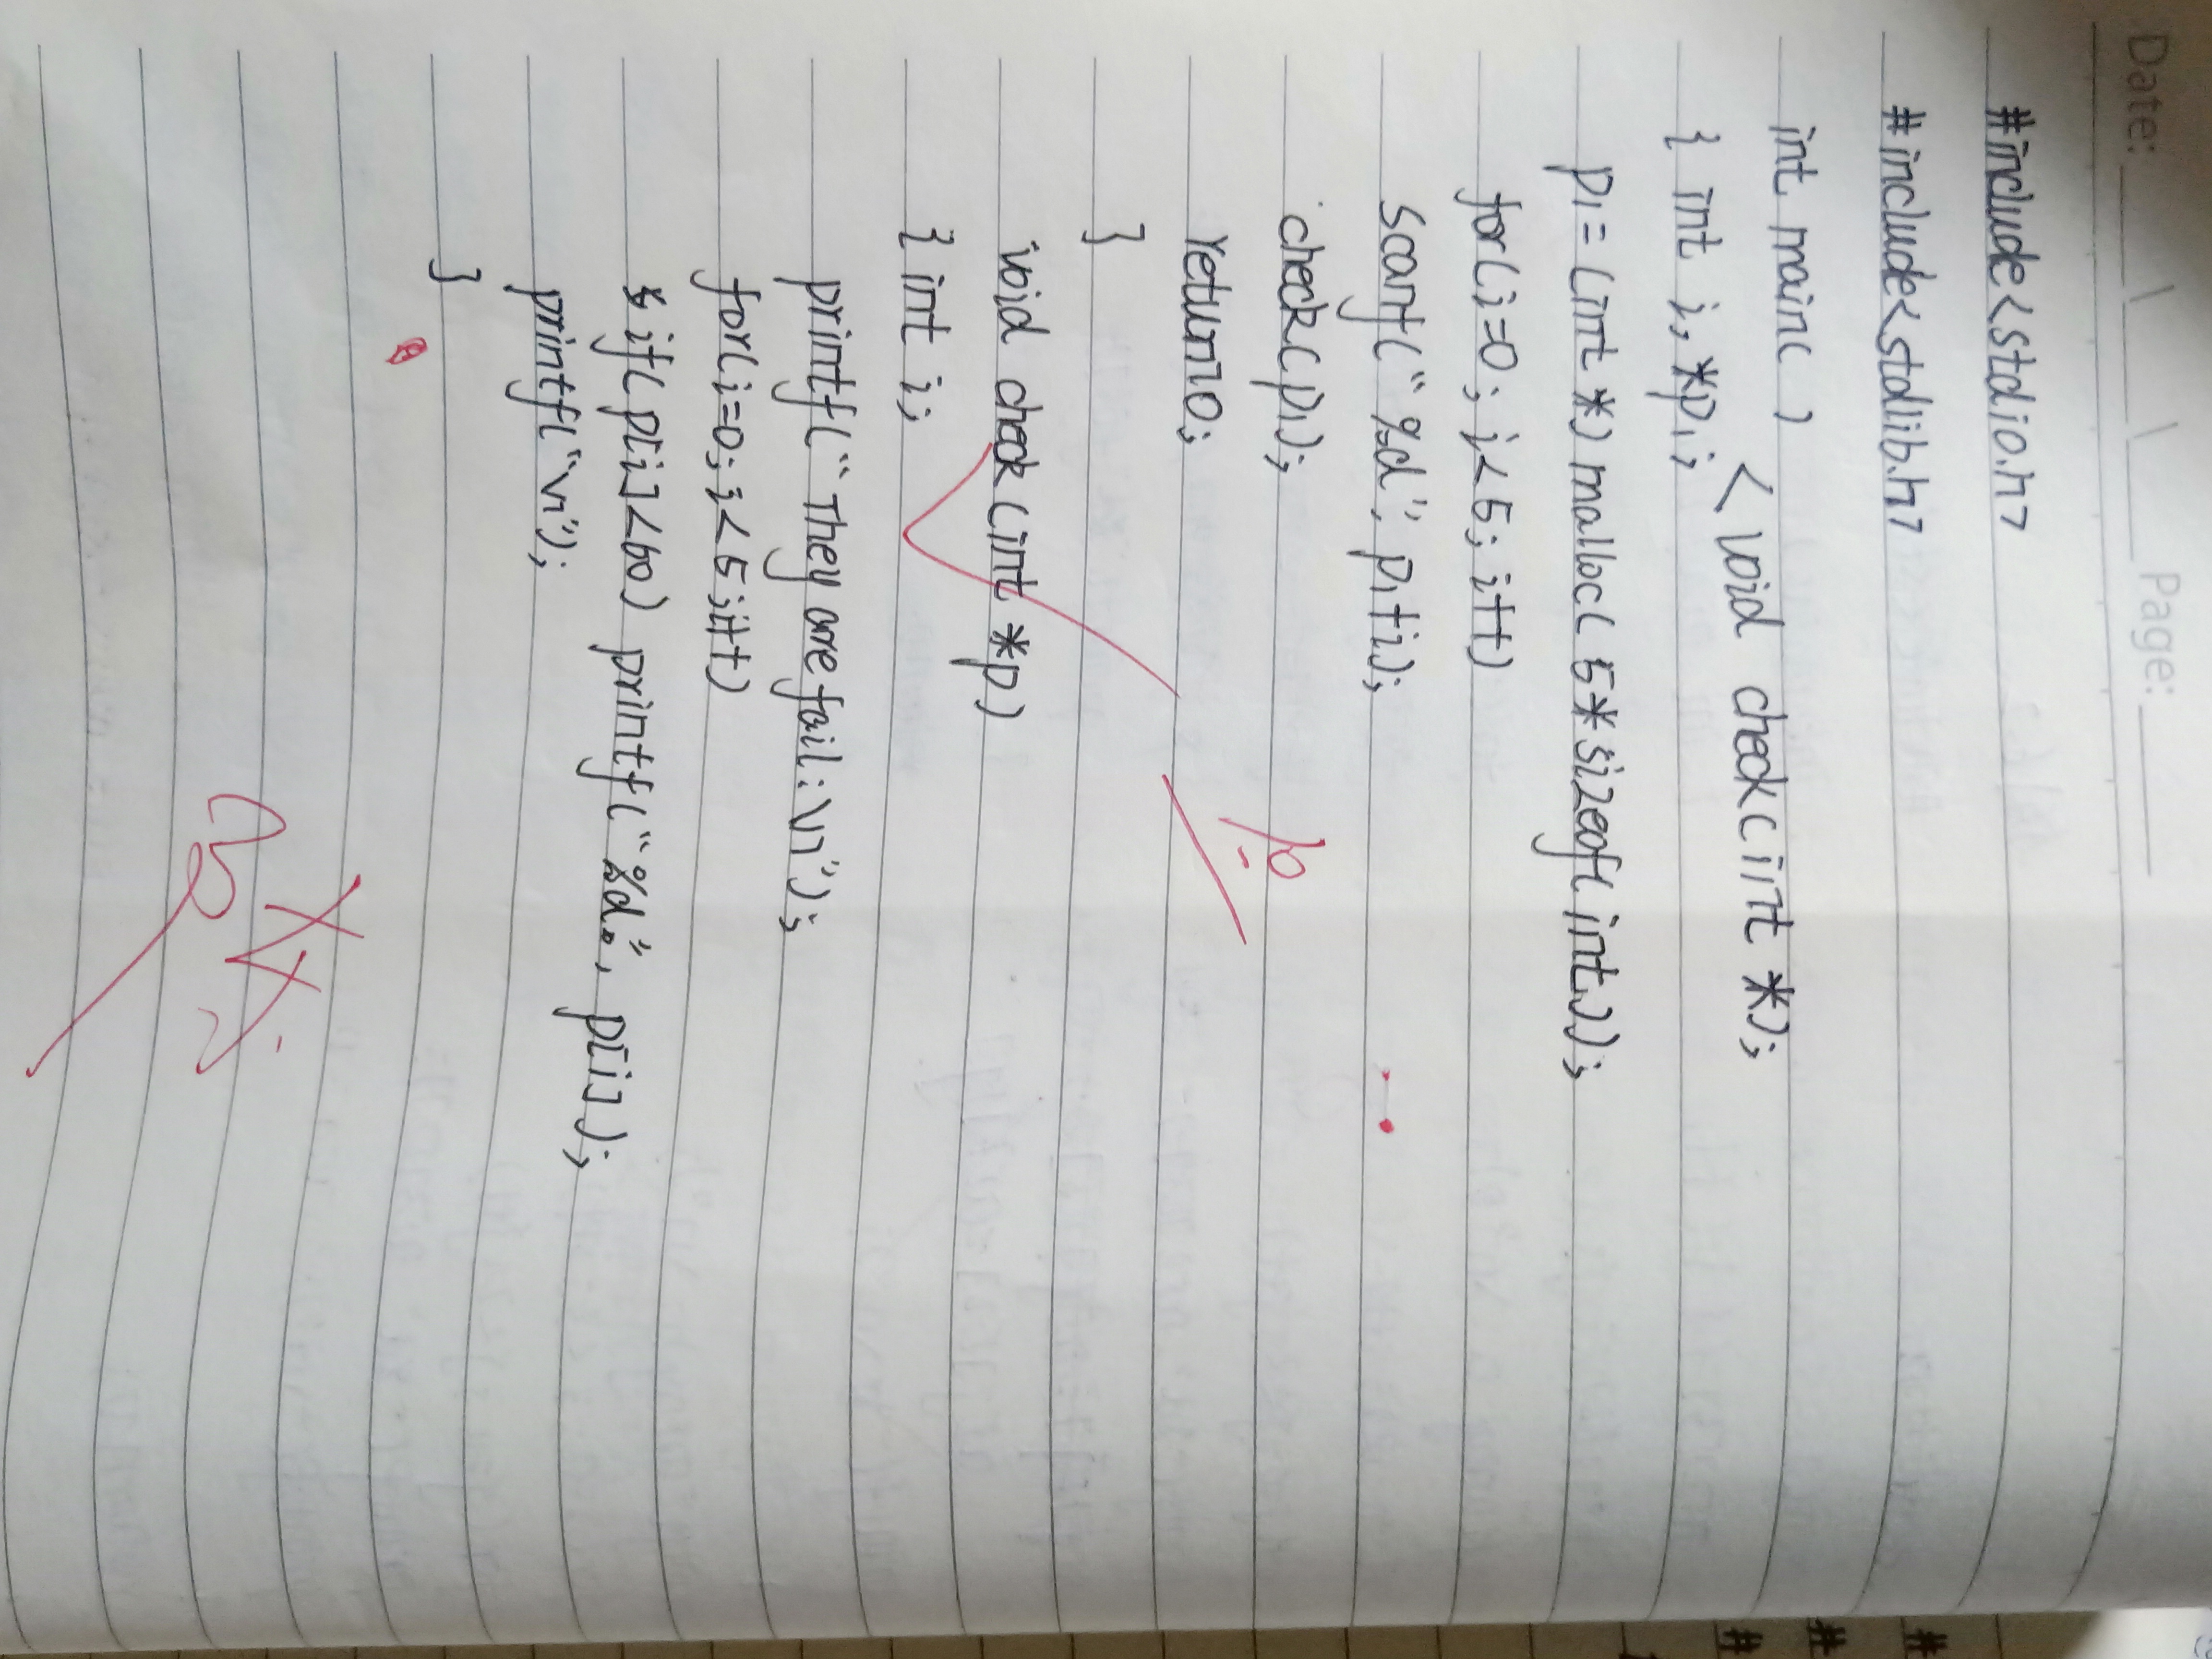 Date: ____\____\____ Page: ______
#include<stdio.h>
#include<stdlib.h>
int main( )
< void check(int *);
{ int i,*p1;
p1=(int *) malloc( 5*sizeof( int ));
for(i=0; i<5; i++)
scanf("%d", p1+i);
check(p1);
return 0;
}
void check(int *p)
{ int i;
printf("They are fail:\n");
for(i=0; i<5;i++)
if( p[i]<60) printf("%d ", p[i]);
printf("\n");
}